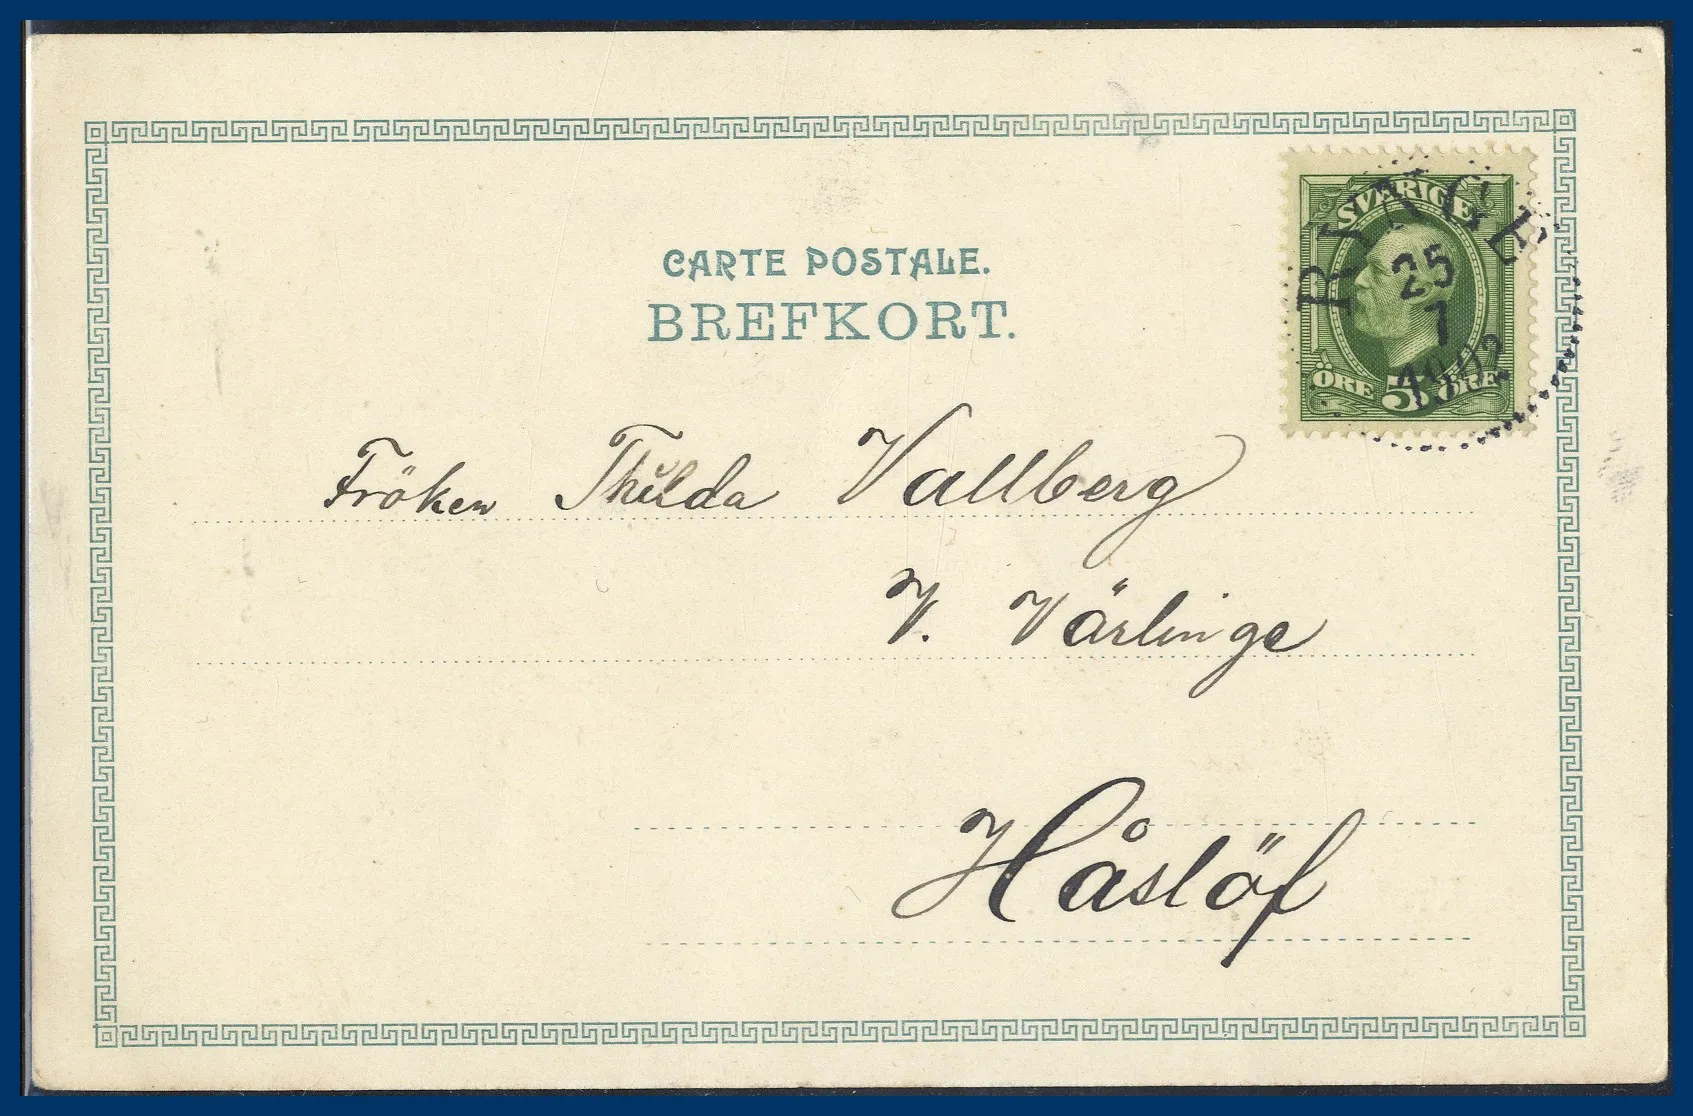 CARTE POSTALE.
BREFKORT.
SVERIGE
ÖRE 5 ÖRE
RYNGE
25
7
1902
Fröken Thilda Vallberg
V. Värlinge
Håslöf